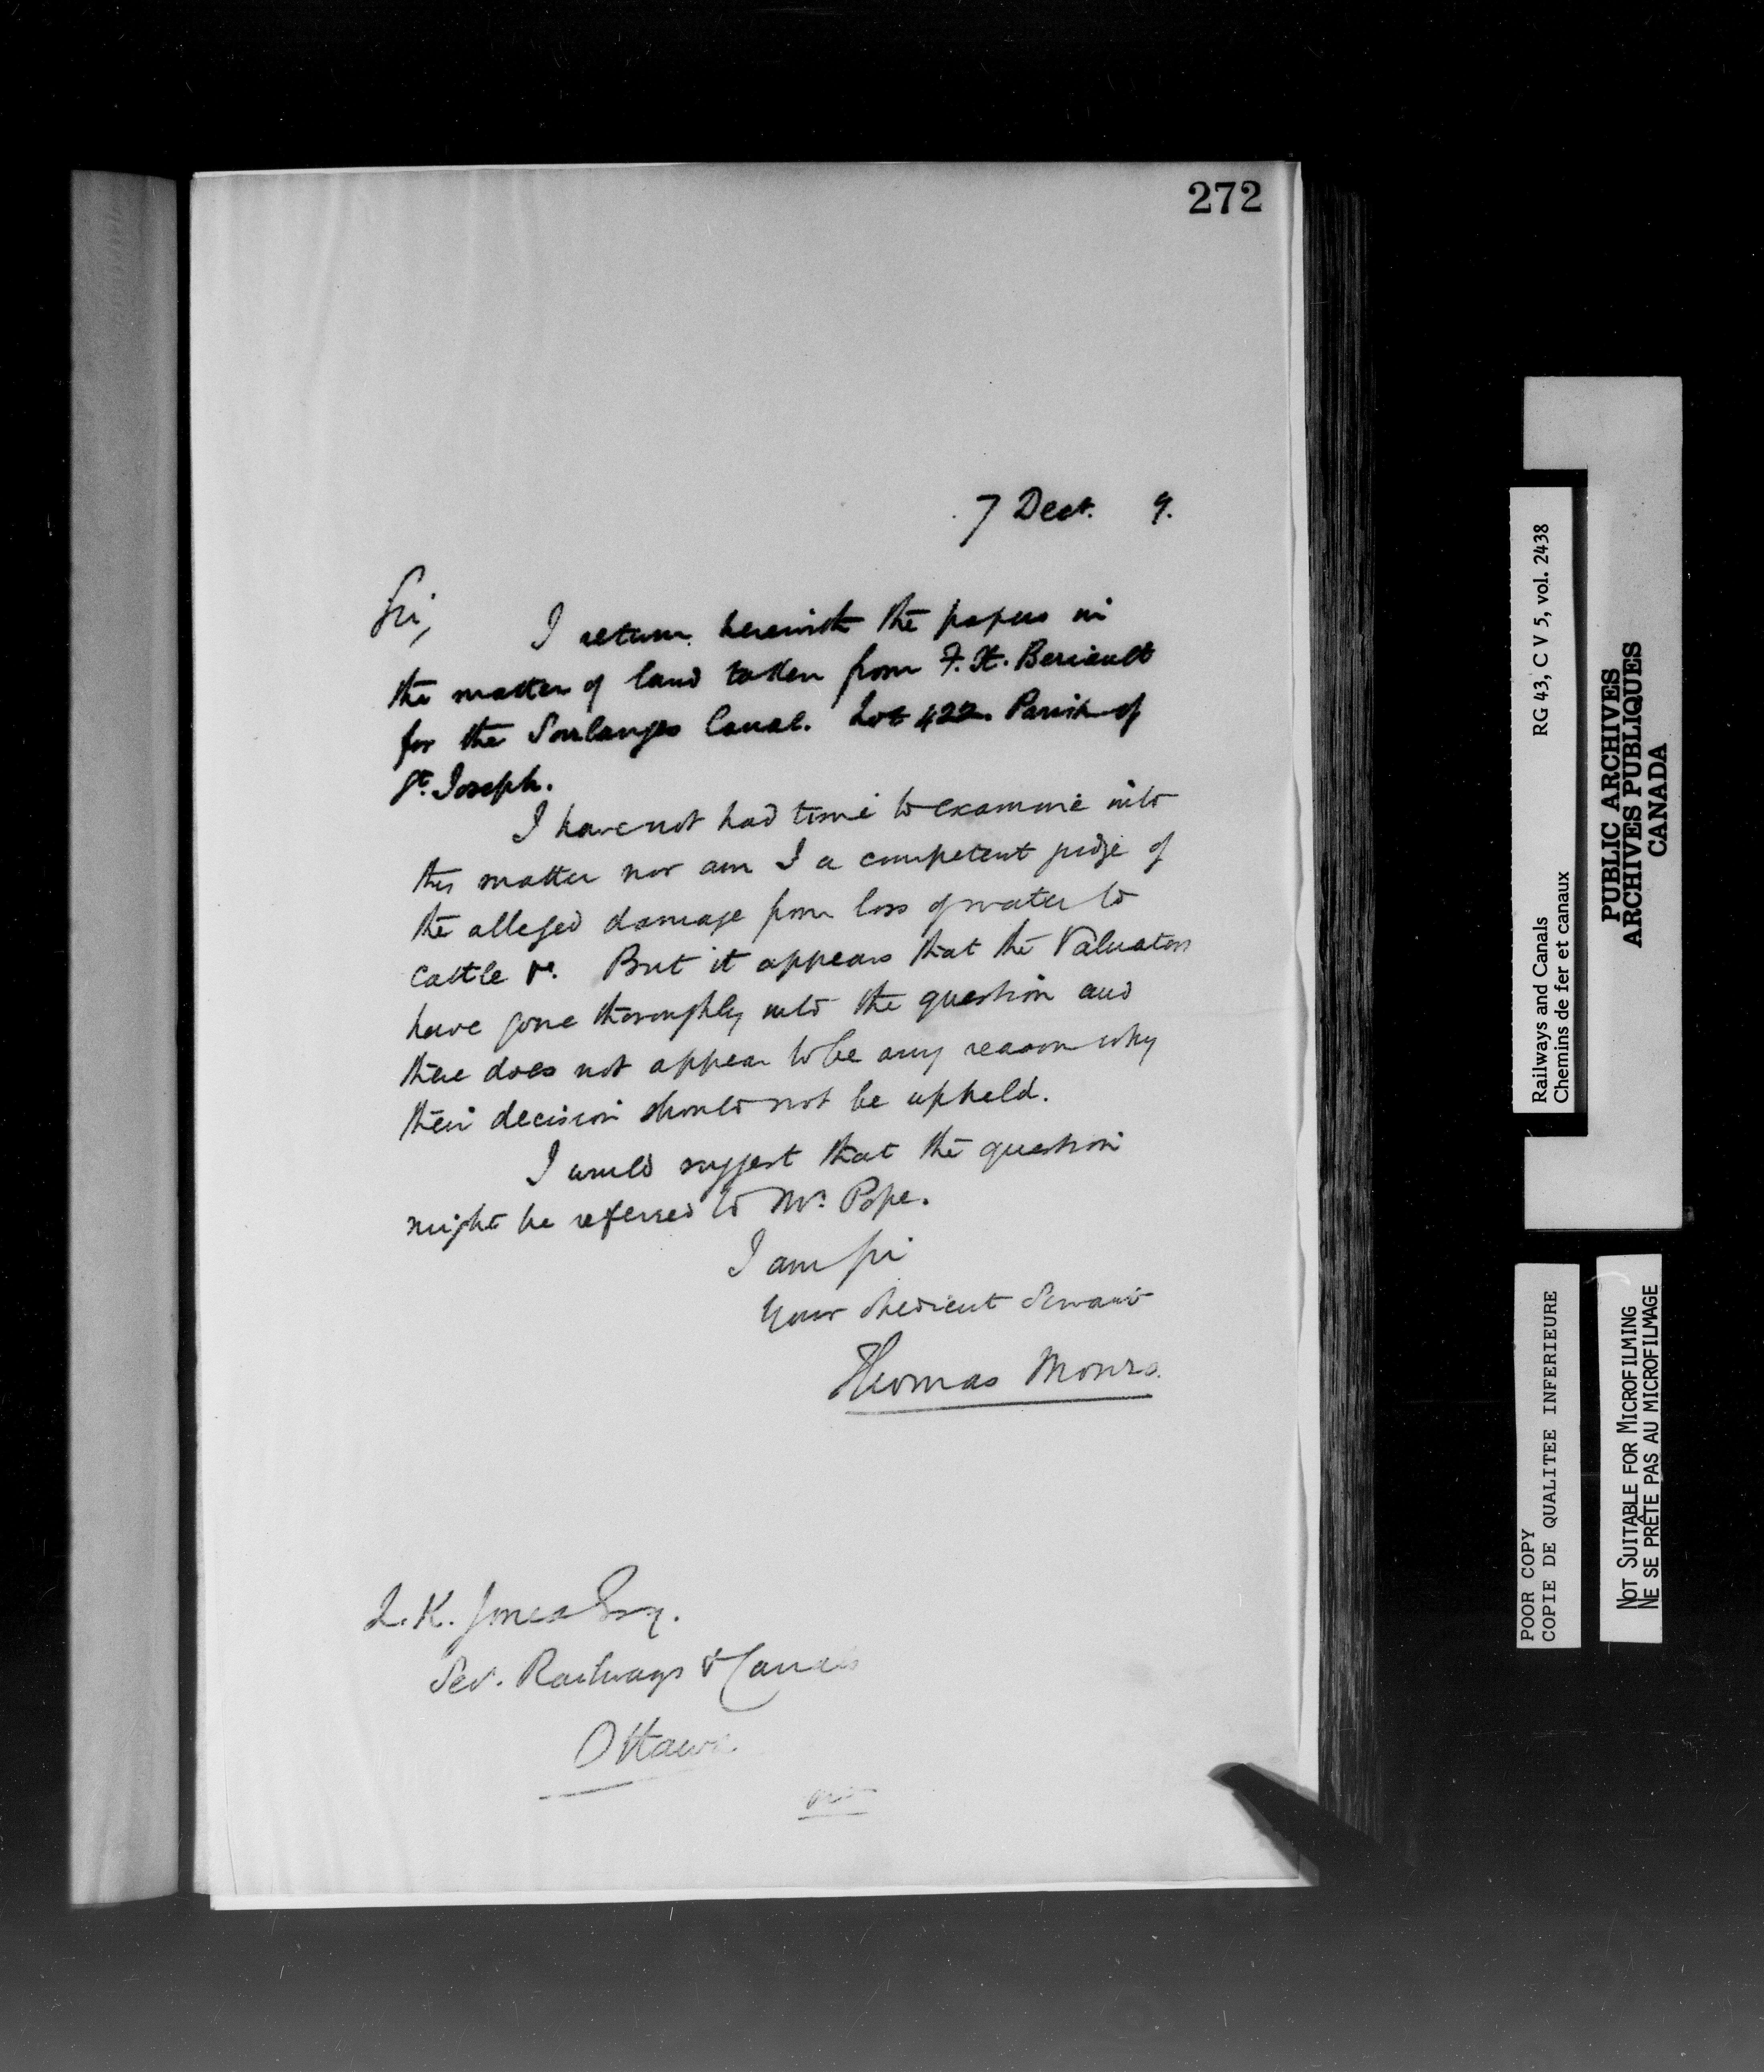 272
7 Dect. 9.
Sir,
I return herewith the papers in
the matter of land taken from F. H. Beriault
for the Soulanges Canal. Lot 422. Parish of
St. Joseph.
I have not had time to examine into
this matter nor am I a competent judge of
the alleged damage from loss of water to
cattle &c. But it appears that the Valuators
have gone thoroughly into the question and
there does not appear to be any reason why
their decision should not be upheld.
I would suggest that the question
might be referred to Mr. Pope.
I am Sir
Your obedient Servant
Thomas Monro.
L. K. Jones Esq.
Sec. Railways & Canals
Ottawa
Railways and Canals RG 43, C V 5, vol. 2438
Chemins de fer et canaux
PUBLIC ARCHIVES
ARCHIVES PUBLIQUES
CANADA
POOR COPY
COPIE DE QUALITEE INFERIEURE
NOT SUITABLE FOR MICROFILMING
NE SE PRÊTE PAS AU MICROFILMAGE